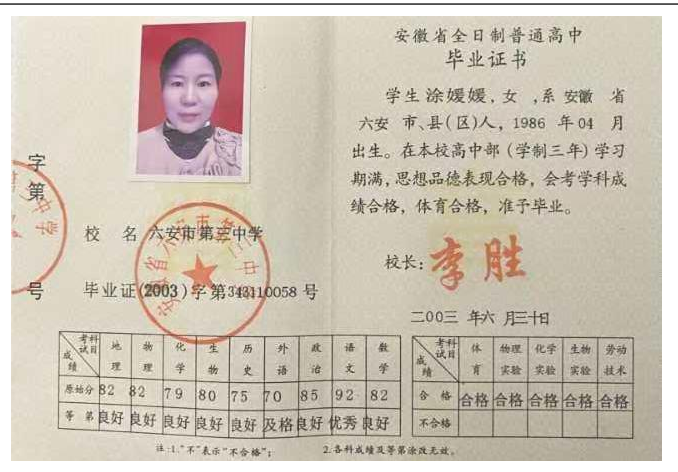 字
第
号
校 名 六安市第三中学
毕业证(2003)字第343110058 号
安徽省全日制普通高中
毕业证书
学生涂媛媛,女 ,系 安徽 省
六安 市、县(区)人, 1986 年04 月
出生。在本校高中部(学制三年)学习
期满,思想品德表现合格,会考学科成
绩合格,体育合格,准予毕业。
校长:李胜
二00三 年六 月三十日
考试科目 成绩 地理 物理 化学 生物 历史 外语 政治 语文 数学
原始分 82 82 79 80 75 70 85 92 82
等 第 良好 良好 良好 良好 良好 及格 良好 优秀 良好
考试科目 成绩 体育 物理实验 化学实验 生物实验 劳动技术
合 格 合格 合格 合格 合格 合格
不合格
注:1."不"表示"不合格"; 2.各科成绩及等第涂改无效。